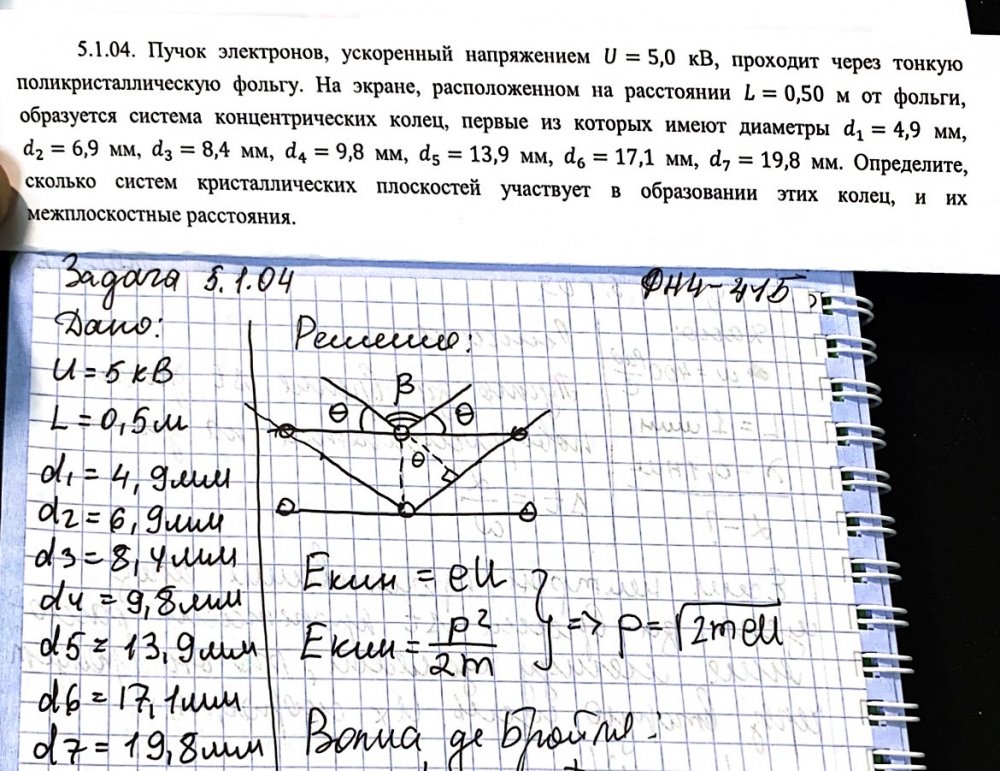 5.1.04. Пучок электронов, ускоренный напряжением U = 5,0 кВ, проходит через тонкую
поликристаллическую фольгу. На экране, расположенном на расстоянии L = 0,50 м от фольги,
образуется система концентрических колец, первые из которых имеют диаметры d₁ = 4,9 мм,
d₂ = 6,9 мм, d₃ = 8,4 мм, d₄ = 9,8 мм, d₅ = 13,9 мм, d₆ = 17,1 мм, d₇ = 19,8 мм. Определите,
сколько систем кристаллических плоскостей участвует в образовании этих колец, и их
межплоскостные расстояния.
Задача 5.1.04
Дано:
U = 5 кВ
L = 0,5 м
d1 = 4,9 мм
d2 = 6,9 мм
d3 = 8,4 мм
d4 = 9,8 мм
d5 = 13,9 мм
d6 = 17,1 мм
d7 = 19,8 мм
Решение:
β
θ θ
θ
Eкин = eU
Eкин = p²/2m } => p = √2meU
Волна де Бройля: